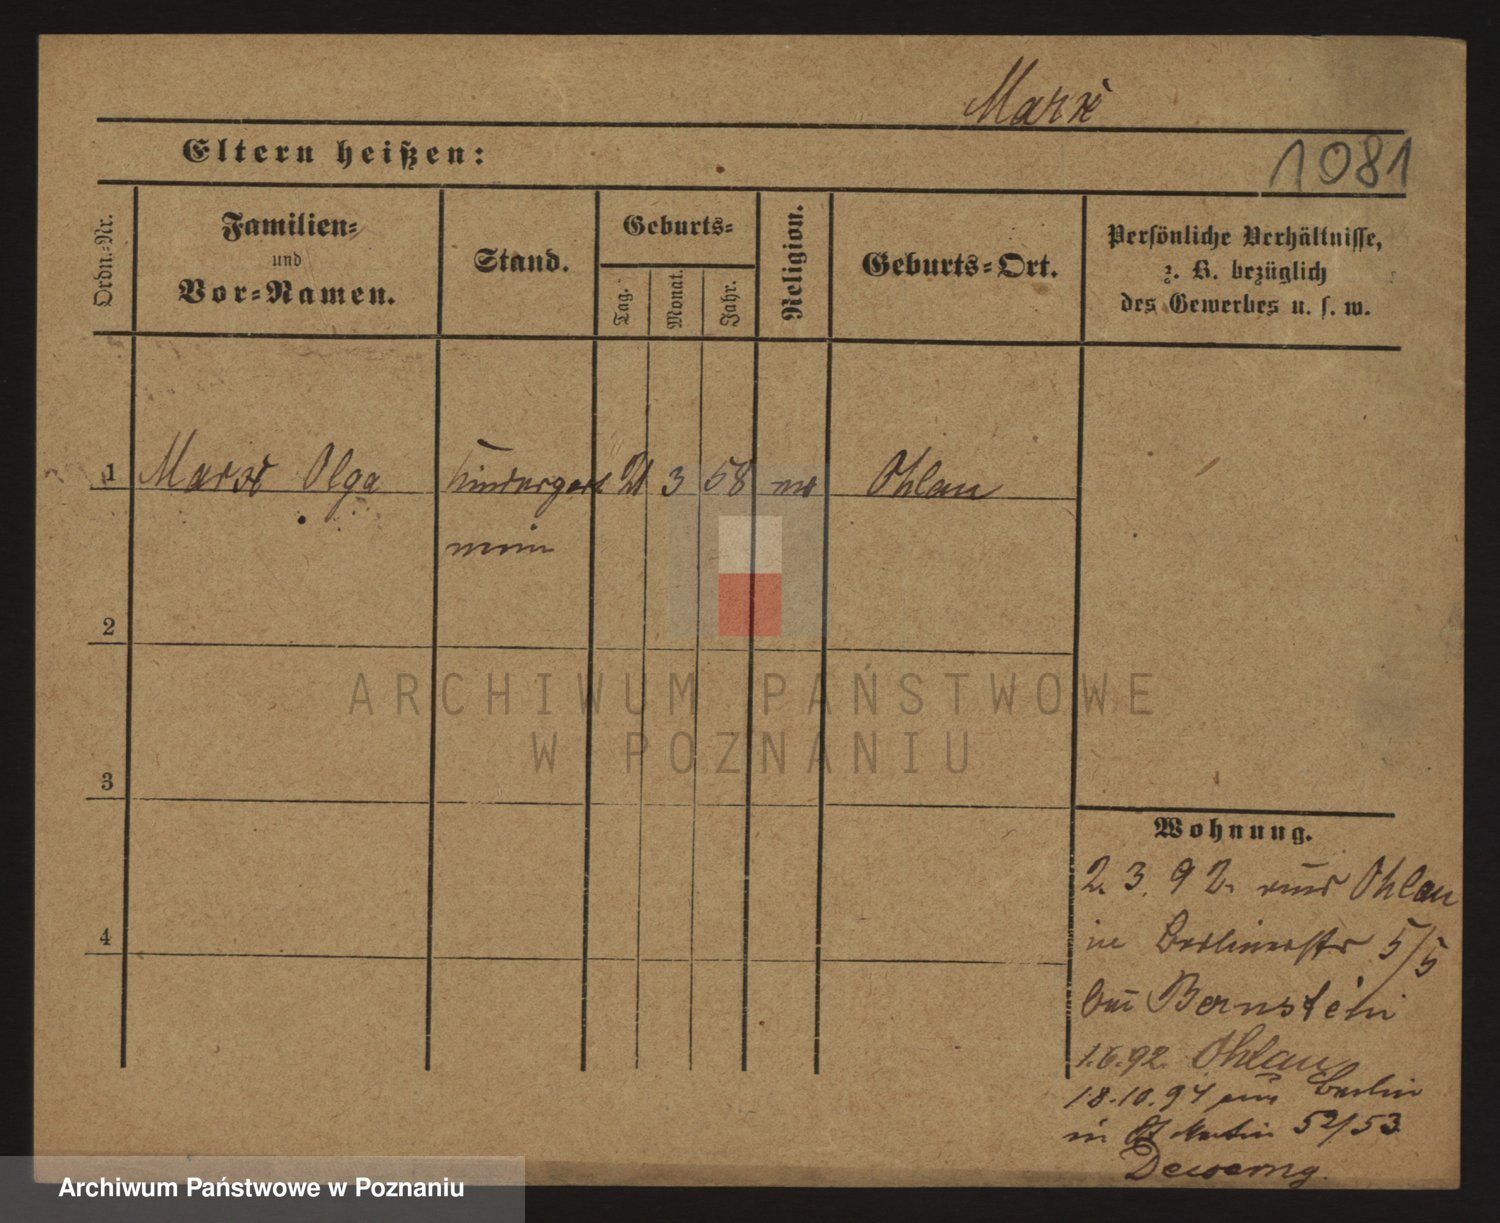 Marx
Eltern heißen:
1081
Ordn.-Nr.
Familien-
und
Vor-Namen.
Stand.
Geburts-
Tag.
Monat.
Jahr.
Religion.
Geburts-Ort.
Persönliche Verhältnisse,
z. B. bezüglich
des Gewerbes u. s. w.
1 Marx Olga Kindergärt 21 3 58 Ohlau
nerin
2
3
4
Wohnung.
2. 3. 92. aus Ohlau
in Berlinerstr 5/5
bei Bernstein
1.6.92. Ohlau
18.10.94 aus Berlin
in St Martin 52/53
ARCHIWUM PAŃSTWOWE
W POZNANIU
Archiwum Państwowe w Poznaniu